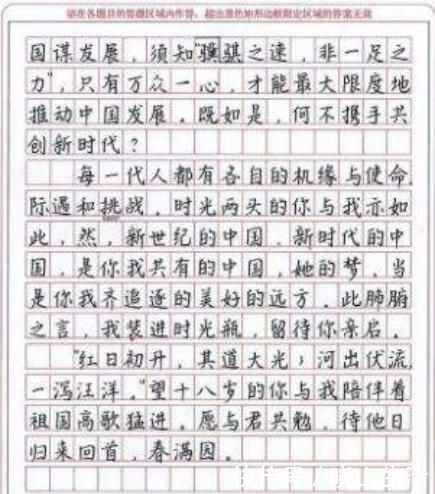 请在各题目的答题区域内作答，超出黑色矩形边框限定区域的答案无效
国谋发展，须知“骐骥之速，非一足之
力”，只有万众一心，才能最大限度地
推动中国发展。既如是，何不携手共
创新时代？
每一代人都有各自的机缘与使命，
际遇和挑战。时光两头的你与我亦如
此，然，新世纪的中国，新时代的中
国，是你我共有的中国，她的梦，当
是你我齐追逐的美好的远方。此肺腑
之言，我装进时光瓶，留待你亲启。
“红日初升，其道大光；河出伏流，
一泻汪洋。”望十八岁的你与我陪伴着
祖国高歌猛进。愿与君共勉，待他日
归来回首，春满园。